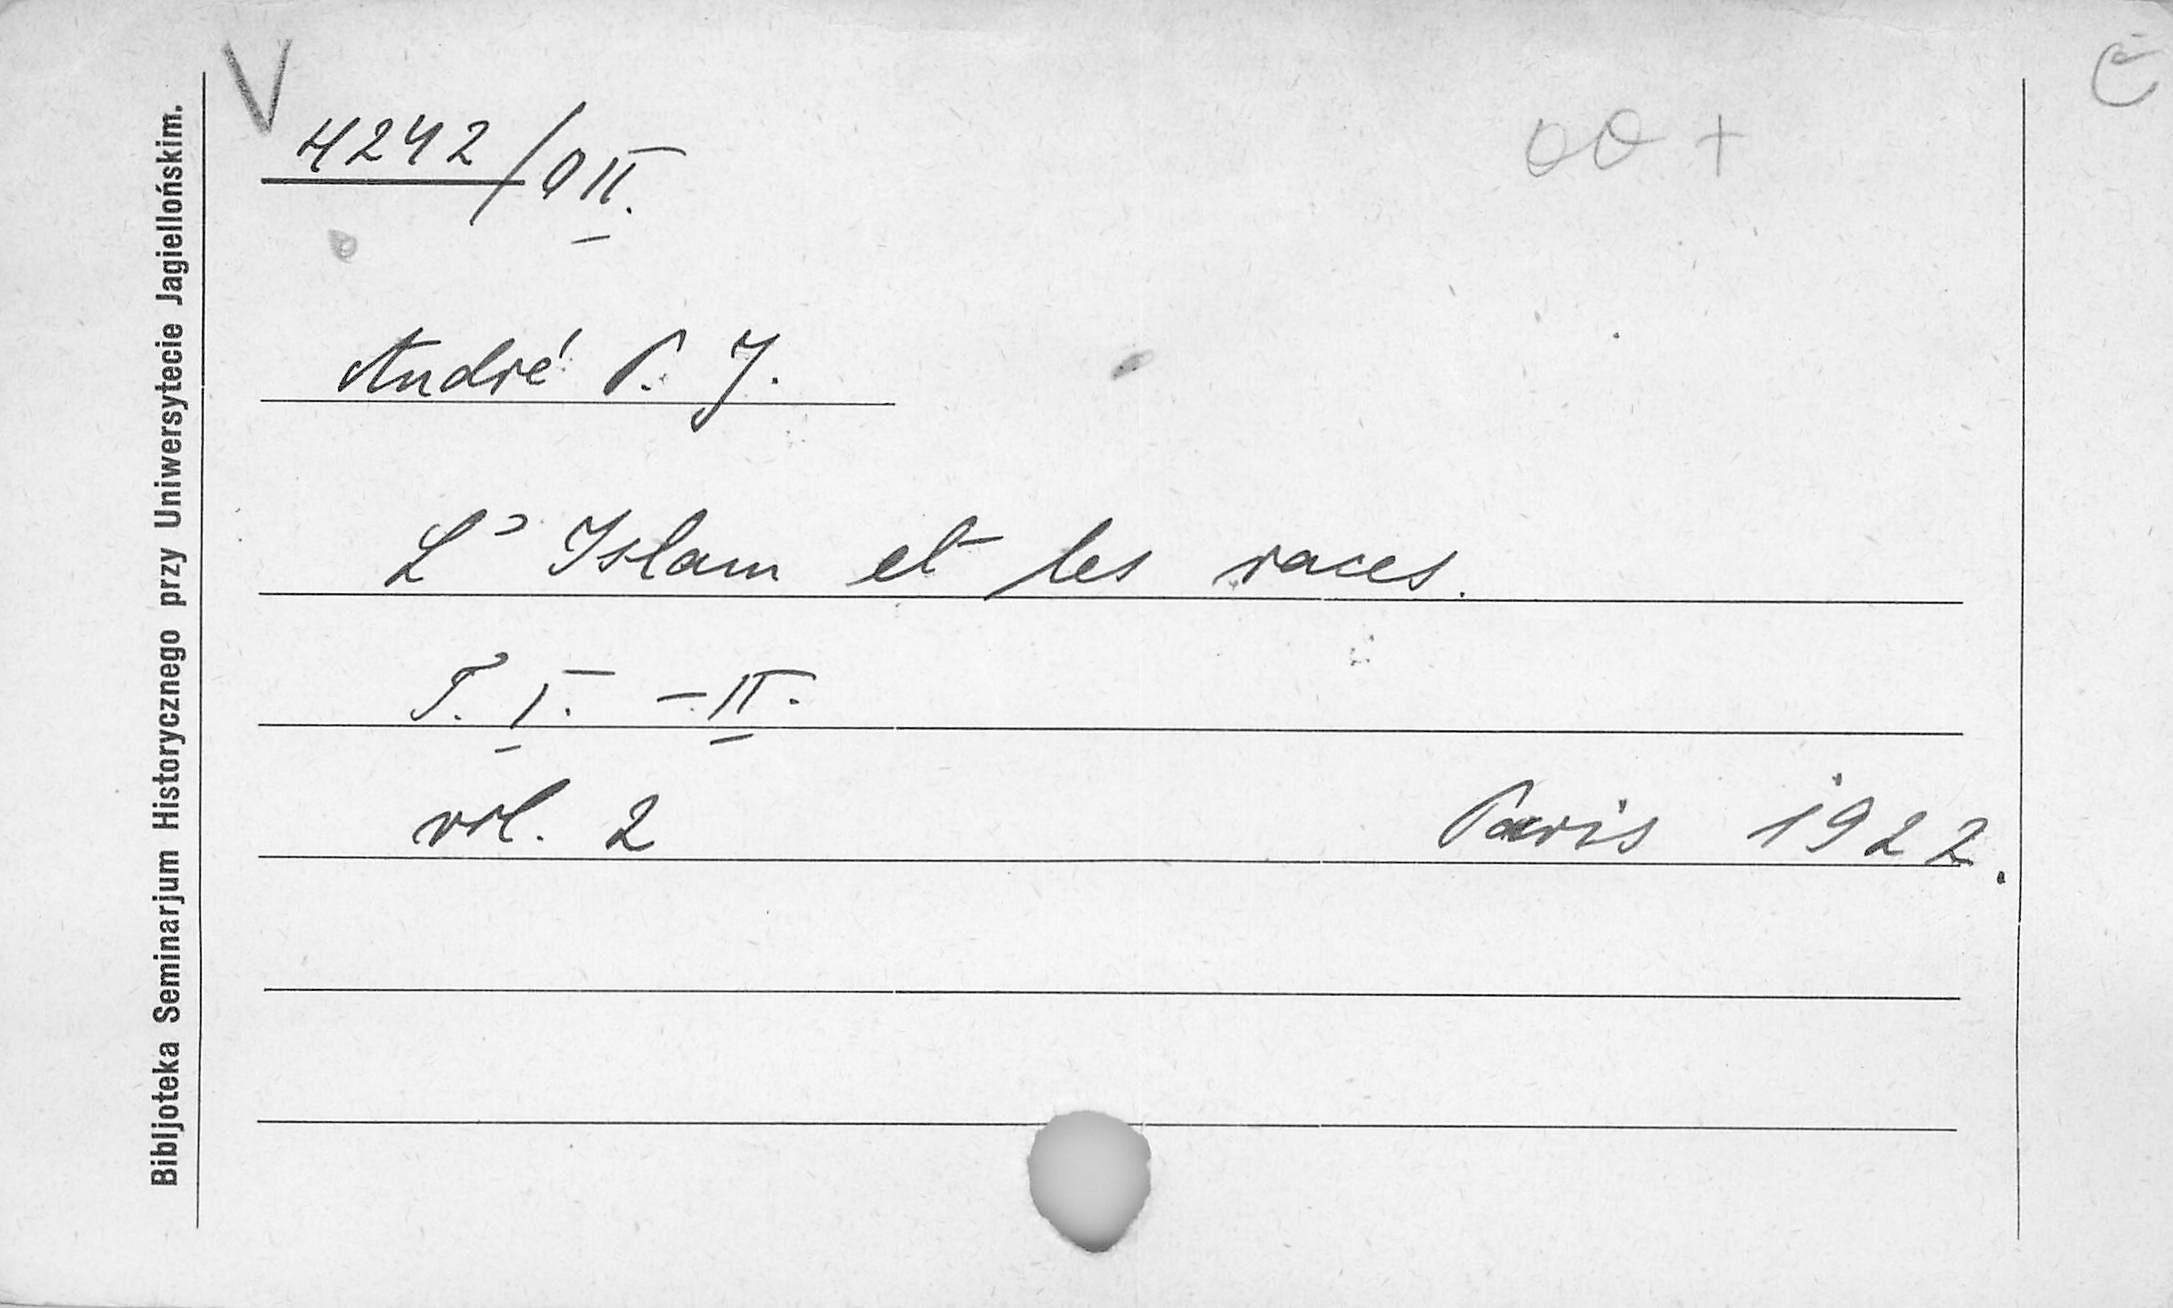 V
4242/0II.
00 +
André P. J.
L'Islam et les races.
T. I. - II.
vol. 2 Paris 1922.
Bibljoteka Seminarjum Historycznego przy Uniwersytecie Jagiellońskim.